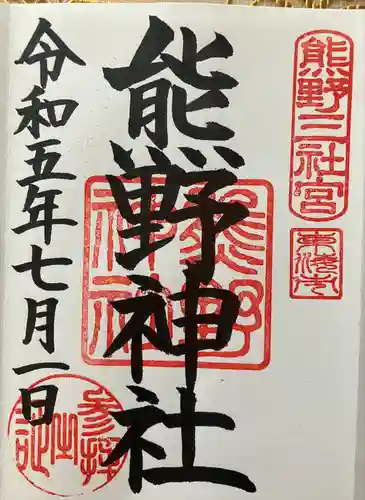 熊野三社宮
東海市
熊野神社
熊野
神社
令和五年七月一日
参拝